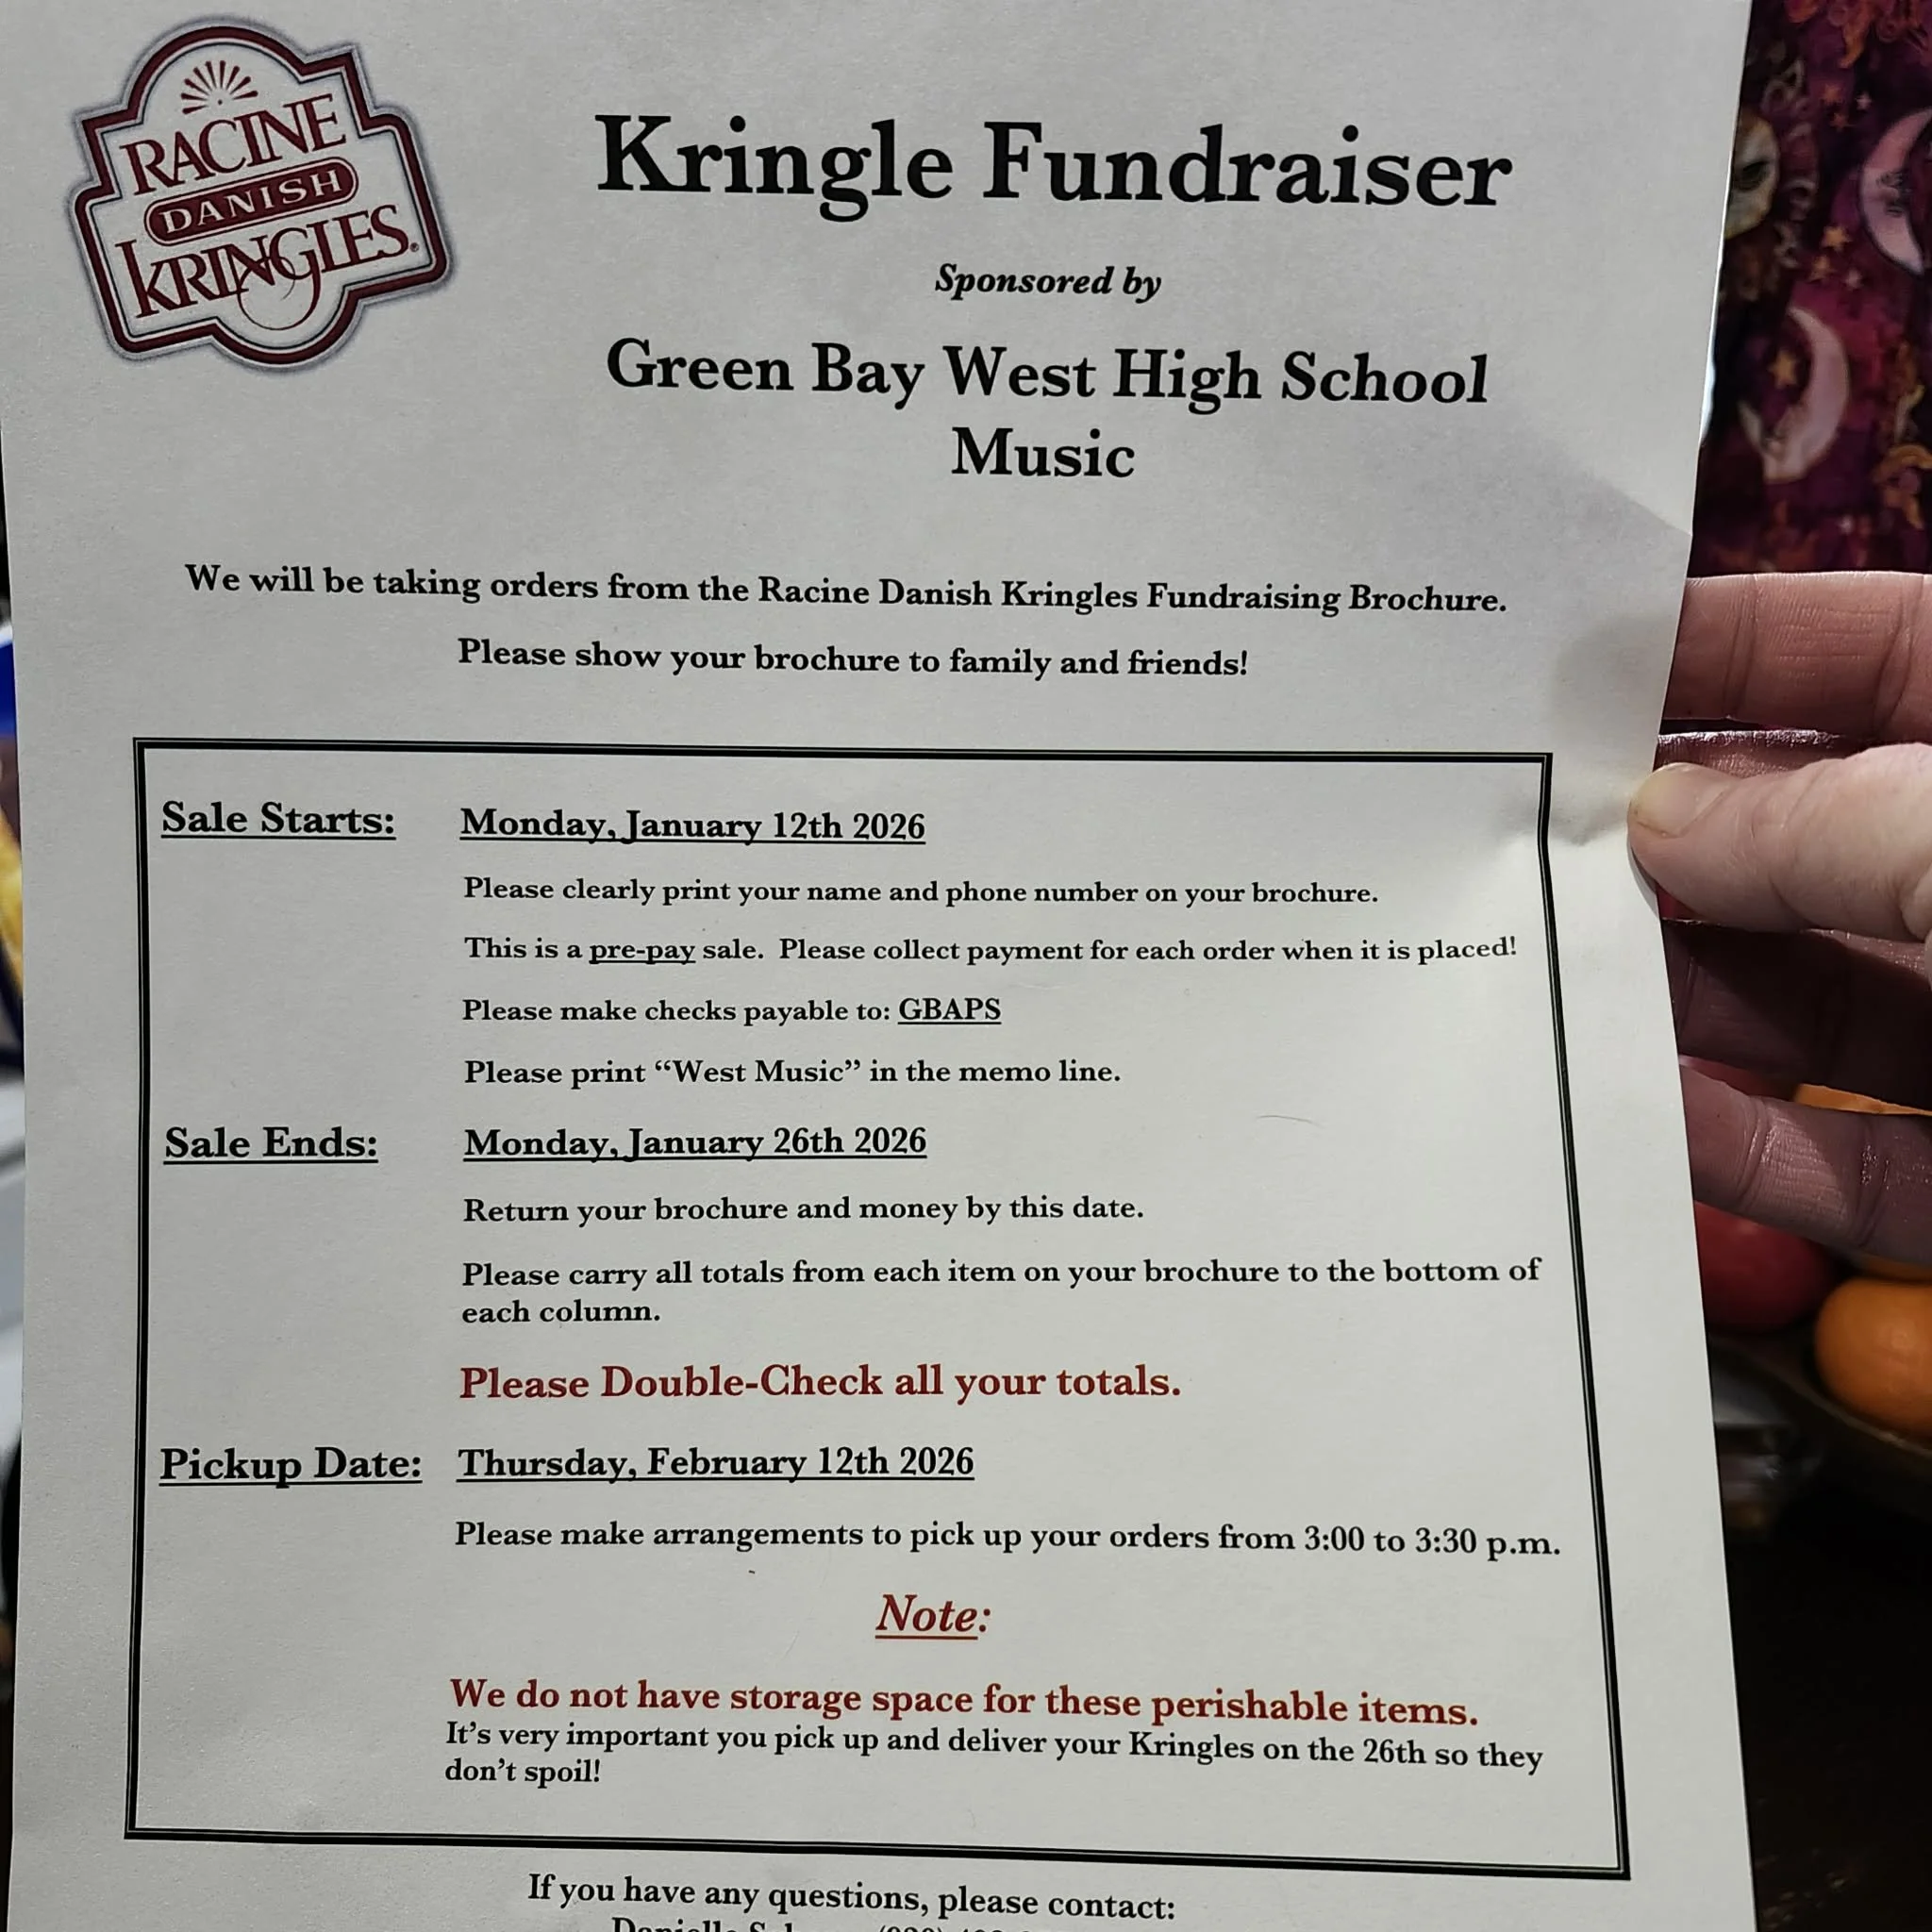 RACINE
DANISH
KRINGLES®
Kringle Fundraiser
Sponsored by
Green Bay West High School
Music
We will be taking orders from the Racine Danish Kringles Fundraising Brochure.
Please show your brochure to family and friends!
Sale Starts: Monday, January 12th 2026
Please clearly print your name and phone number on your brochure.
This is a pre-pay sale. Please collect payment for each order when it is placed!
Please make checks payable to: GBAPS
Please print “West Music” in the memo line.
Sale Ends: Monday, January 26th 2026
Return your brochure and money by this date.
Please carry all totals from each item on your brochure to the bottom of
each column.
Please Double-Check all your totals.
Pickup Date: Thursday, February 12th 2026
Please make arrangements to pick up your orders from 3:00 to 3:30 p.m.
Note:
We do not have storage space for these perishable items.
It’s very important you pick up and deliver your Kringles on the 26th so they
don’t spoil!
If you have any questions, please contact: